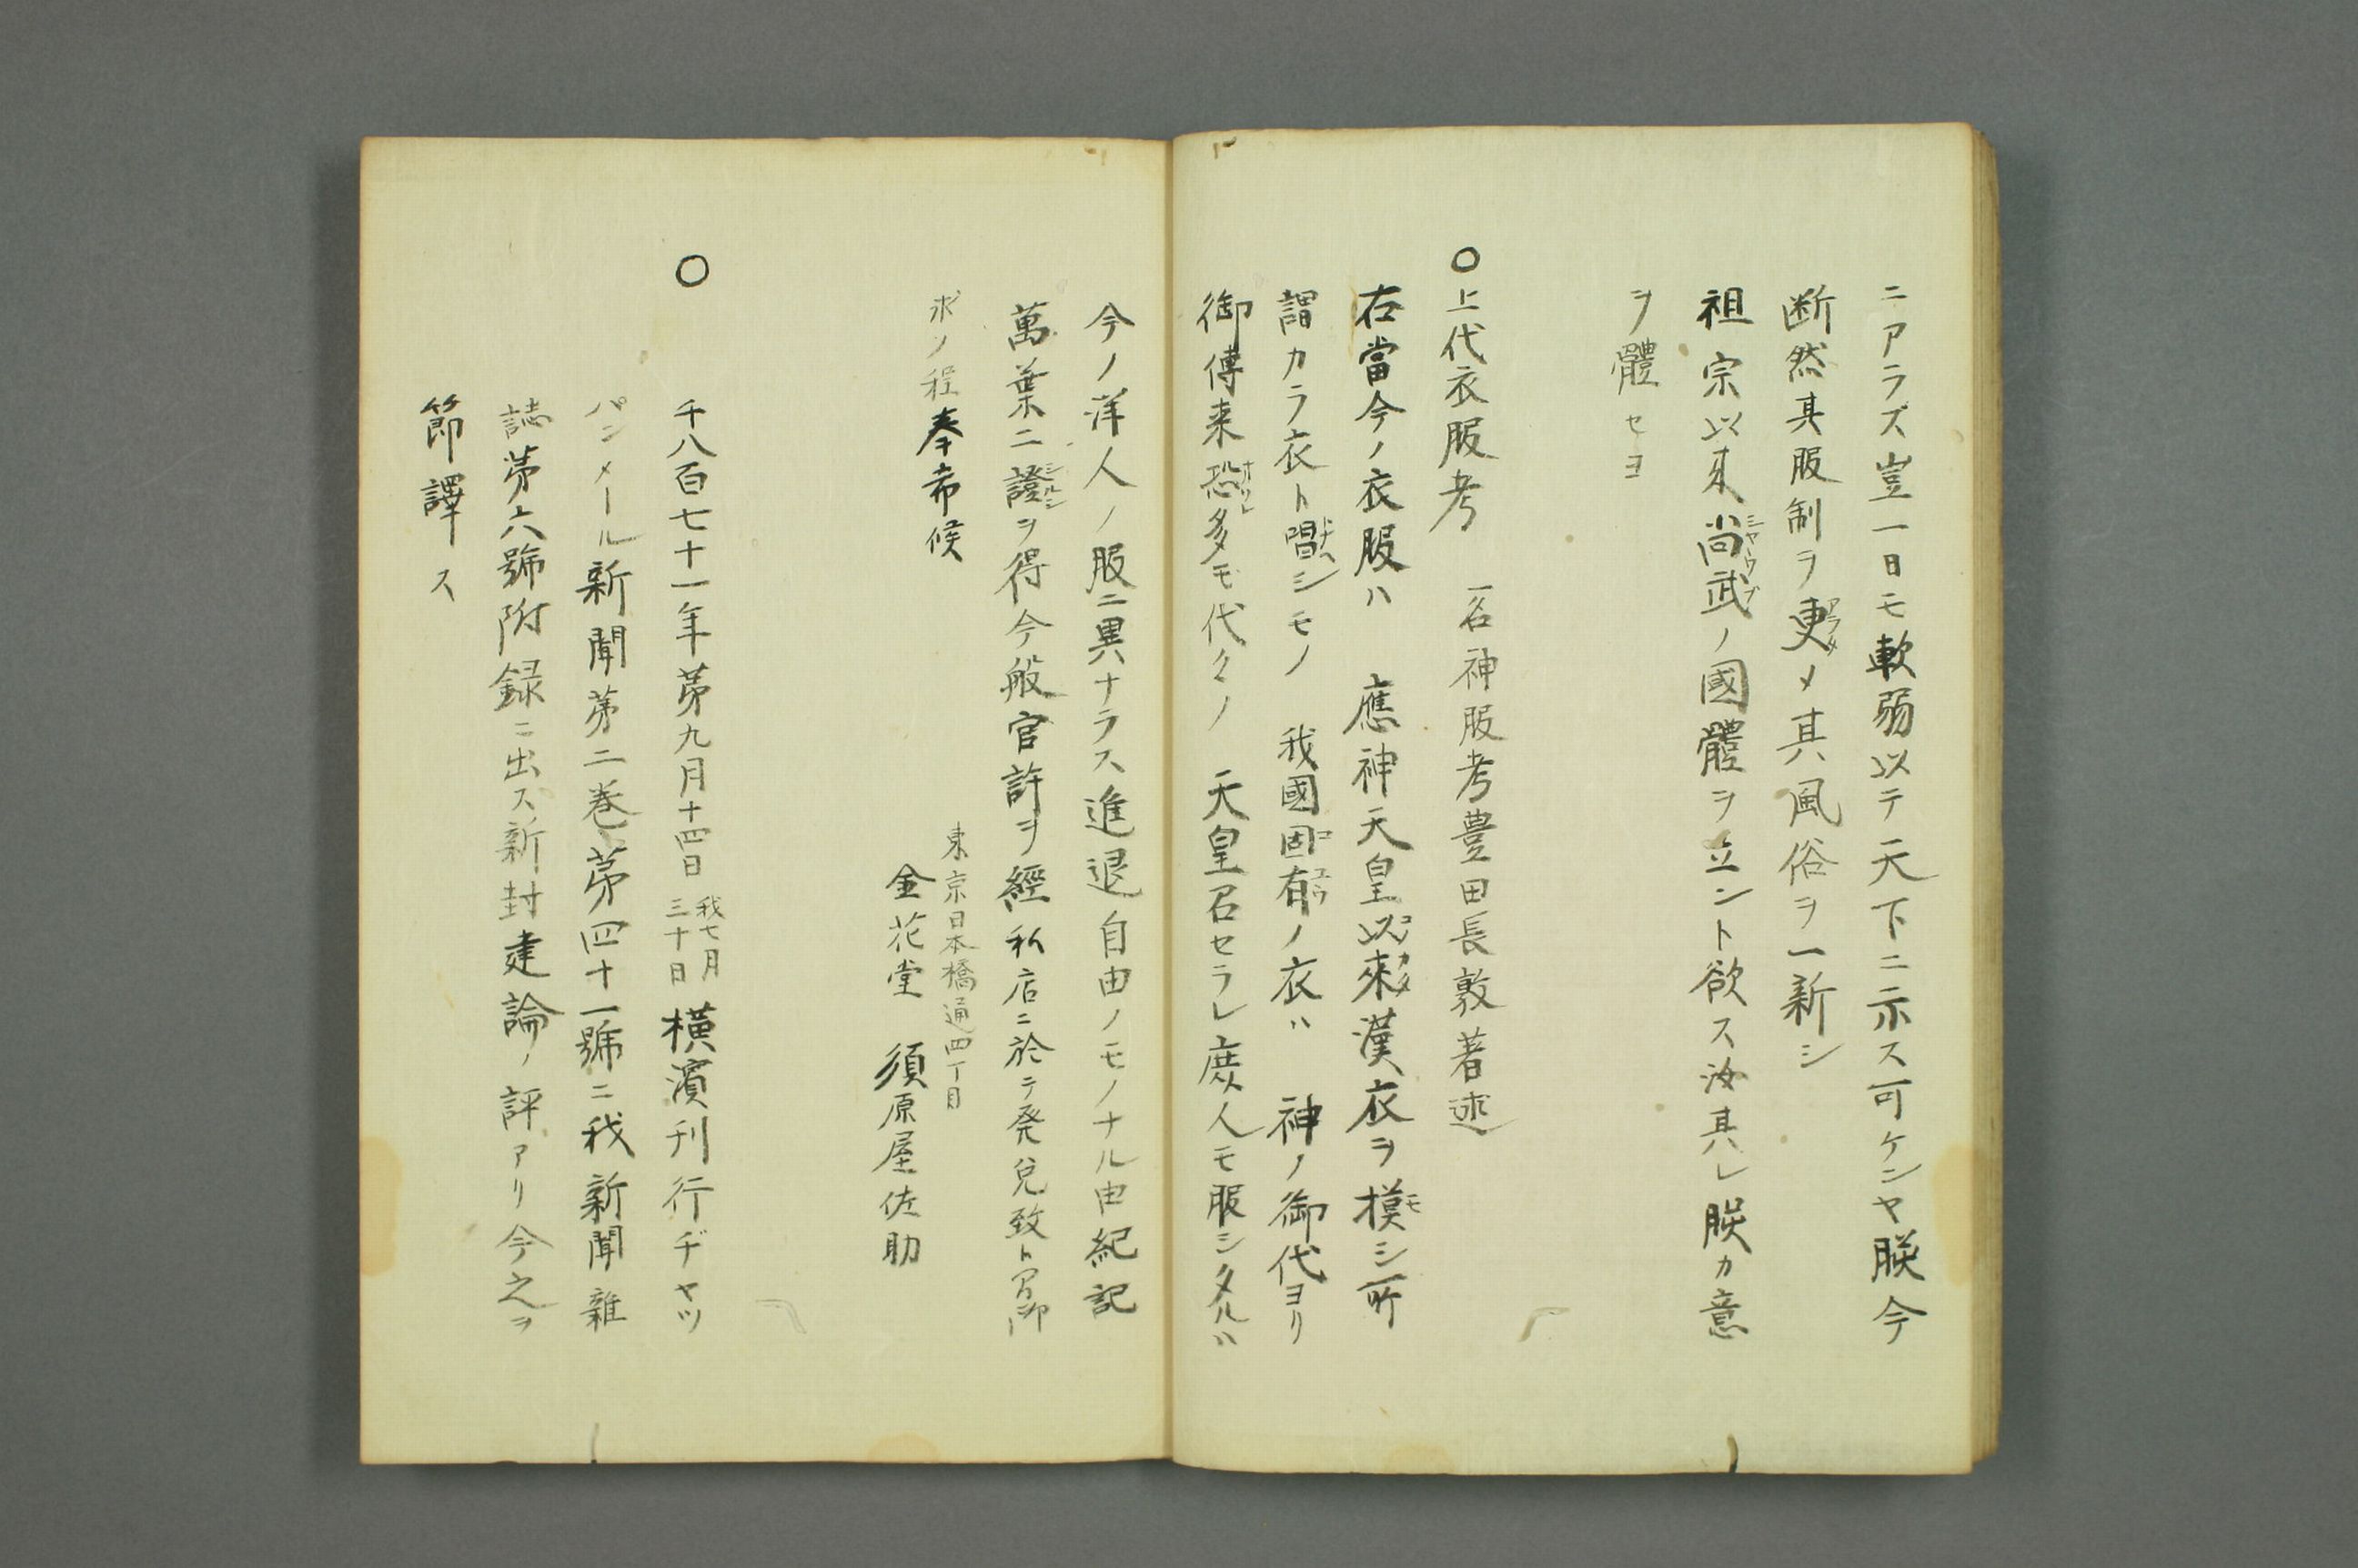 ニアラズ豈一日モ軟弱以テ天下ニ示ス可ケンヤ朕今
断然其服制ヲ更アラタメメ其風俗ヲ一新シ
祖宗以来尚武シヤウブノ國體ヲ立ント欲ス汝其レ朕カ意
ヲ體セヨ
○上代衣服考 一名神服考豊田長敦著述
右當今ノ衣服ハ 應神天皇以來コノカタ漢衣ヲ模モシ所
謂カラ衣ト唱トナヘシモノ 我國固有コユウノ衣ハ 神ノ御代ヨリ
御傳来恐オソレ多モ代々ノ 天皇召セラレ庶人モ服シタルハ
今ノ洋人ノ服ニ異ナラス進退自由ノモノナル由紀記
萬葉ニ證シルシヲ得今般官許ヲ經私店ニ於テ発兌致ト間御
求ノ程奉希候
東京日本橋通四丁目
金花堂 須原屋佐助
○ 千八百七十一年第九月十四日 我七月三十日 横濱刊行ヂヤツ
パンメール新聞第二巻第四十一號ニ我新聞雜
誌第六號附録ニ出ス新封建論ノ評アリ今之ヲ
節譯ス